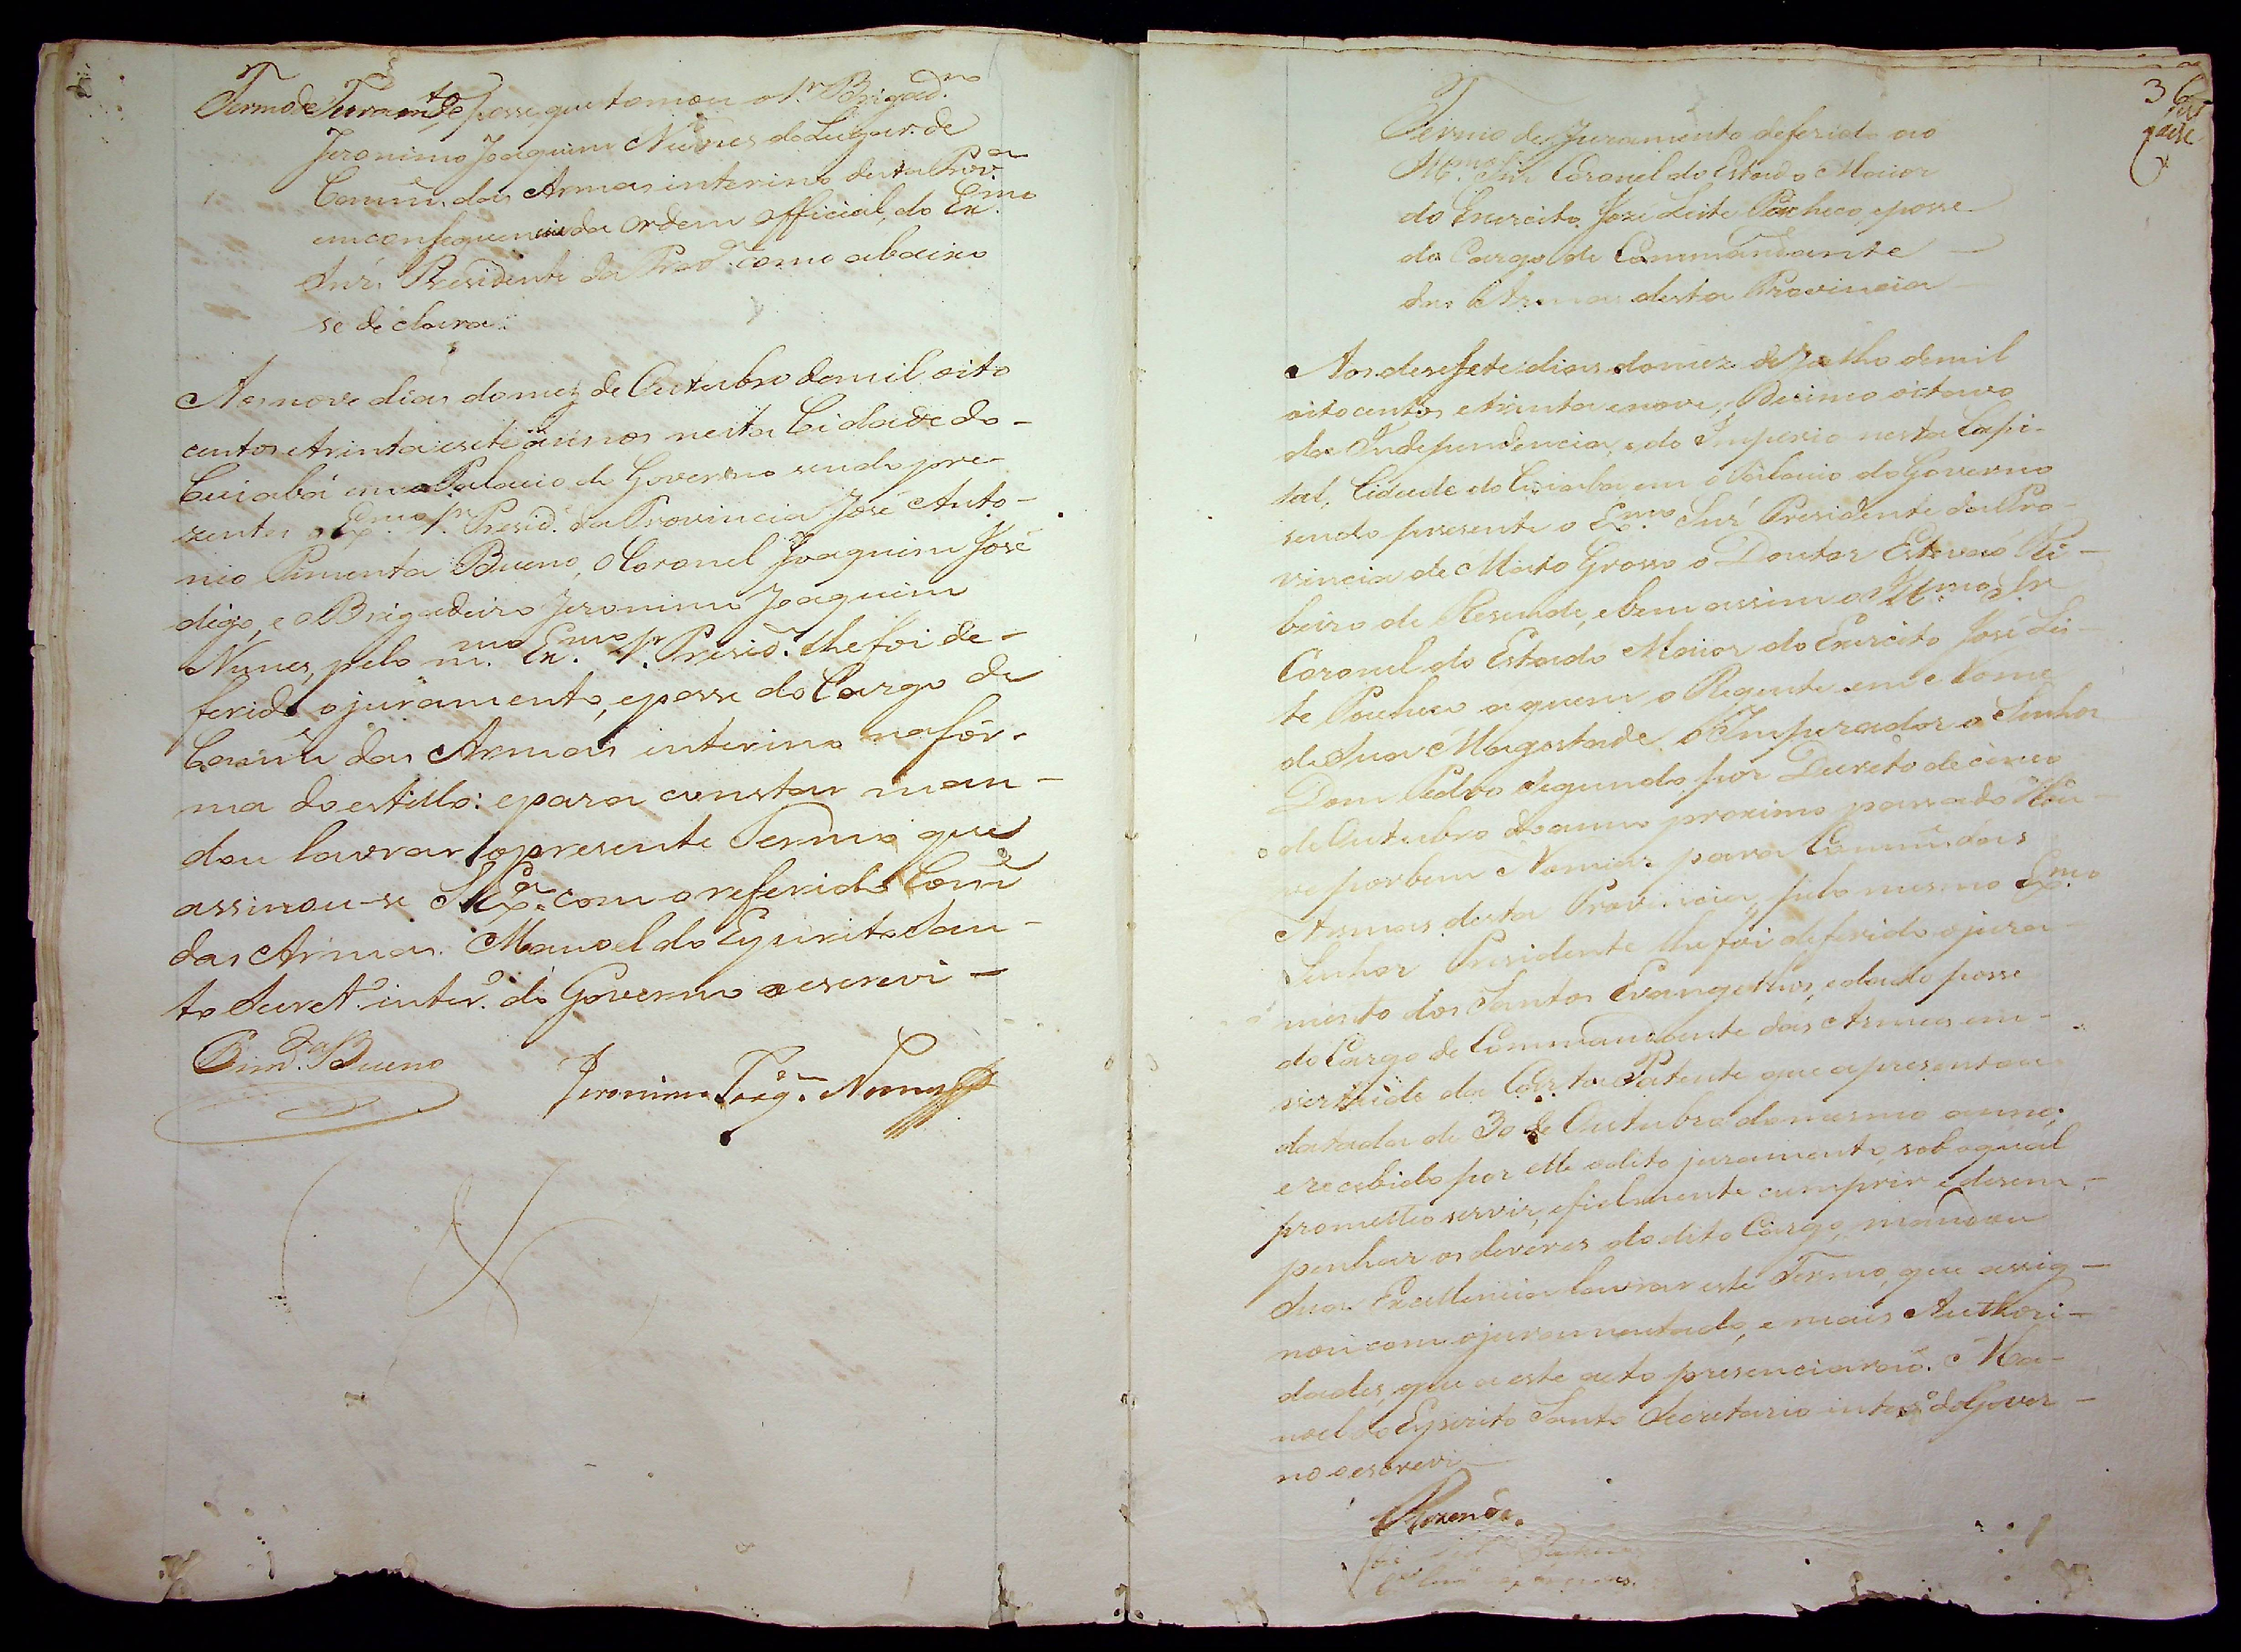 Termo de Juram.to de posse, que tomou o S.r Brigad.ro
Jeronimo Joaquim Nunes do Lugar de
Comm.e das Armas interino desta Prov.a
em consequencia da ordem official, do Ex.mo
Snr. Presidente da Prov.a como abaixo
se declara.
Aos nove dias do mez de Outubro de mil oito
centos e trinta e sete annos nesta Cidade do
Cuiabá em o Palacio do Governo sendo pre-
zentes o Ex.mo Sr. Presid.e da Provincia José Anto-
nio Pimenta Bueno, o Coronel Joaquim José
digo, e o Brigadeiro Jeronimo Joaquim
Nunes, pelo m.mo Ex.mo Sr. Presid.e lhe foi de-
ferido o juramento, e posse do Cargo de
Comm.e das Armas interino na fór-
ma do estillo: e para constar man-
dou lavrar o presente Termo que
assinou-se S. Ex.a com o referido Comm.e
das Armas. Manoel do Espirito San-
to Secret.o inter.o do Governo o escrevi —
Pim.ta Bueno
Jeronimo Joaq.m Nunes
36
Termo de Juramento deferido ao
Ill.mo Snr. Coronel do Estado Maior
do Exercito José Leite Pacheco, e posse
do Cargo de Commandante
das Armas desta Provincia
Aos desesete dias do mez de Julho de mil
oito centos e trinta e nove, Decimo oitavo
da Independencia, e do Imperio nesta Capi-
tal, Cidade do Cuiabá em o Palacio do Governo
sendo presente o Ex.mo Snr. Presidente da Pro-
vincia de Mato Grosso o Doutor Estevaõ Ri-
beiro de Resende, e bem assim o Ill.mo Sr.
Coronel do Estado Maior do Exercito José Lei-
te Pacheco a quem o Regente em Nome
de Sua Magestade o Imperador o Senhor
Dom Pedro Segundo por Decreto de cinco
de Outubro do anno proximo passado Hou-
ve por bem Nomear para Comm.e das
Armas desta Provincia, pelo mesmo Ex.mo
Senhor Presidente lhe foi deferido o jura-
mento dos Santos Evangelhos, e dado posse
do Cargo de Commandante das Armas em
virtude da Carta Patente que apresentou
datada de 30 de Outubro do mesmo anno:
e recebido por elle o dito juramento, sob o qual
prometteo servir, e fielmente cumprir e desem-
penhar os deveres do dito Cargo, mandou
Sua Excellencia lavrar este Termo, que assig-
nou com o juramentado, e mais Authori-
dades, que a este acto presenciaraõ. Ma-
noel do Espirito Santo Secretario inter.o do Gover-
no o escrevi
Rezende.
José Leite Pacheco